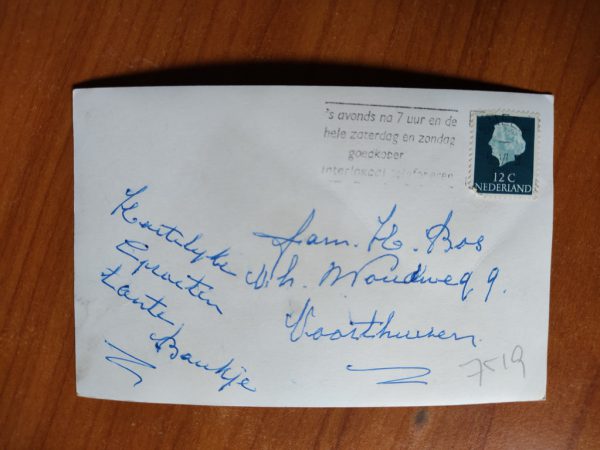 's avonds na 7 uur en de
hele zaterdag en zondag
goedkoper
interlokaal telefoneren
12 C
NEDERLAND
Hartelijke
Groeten
tante
Baukje
Fam. H. Bos
Woudweg 9.
Voorthuizen.
7519